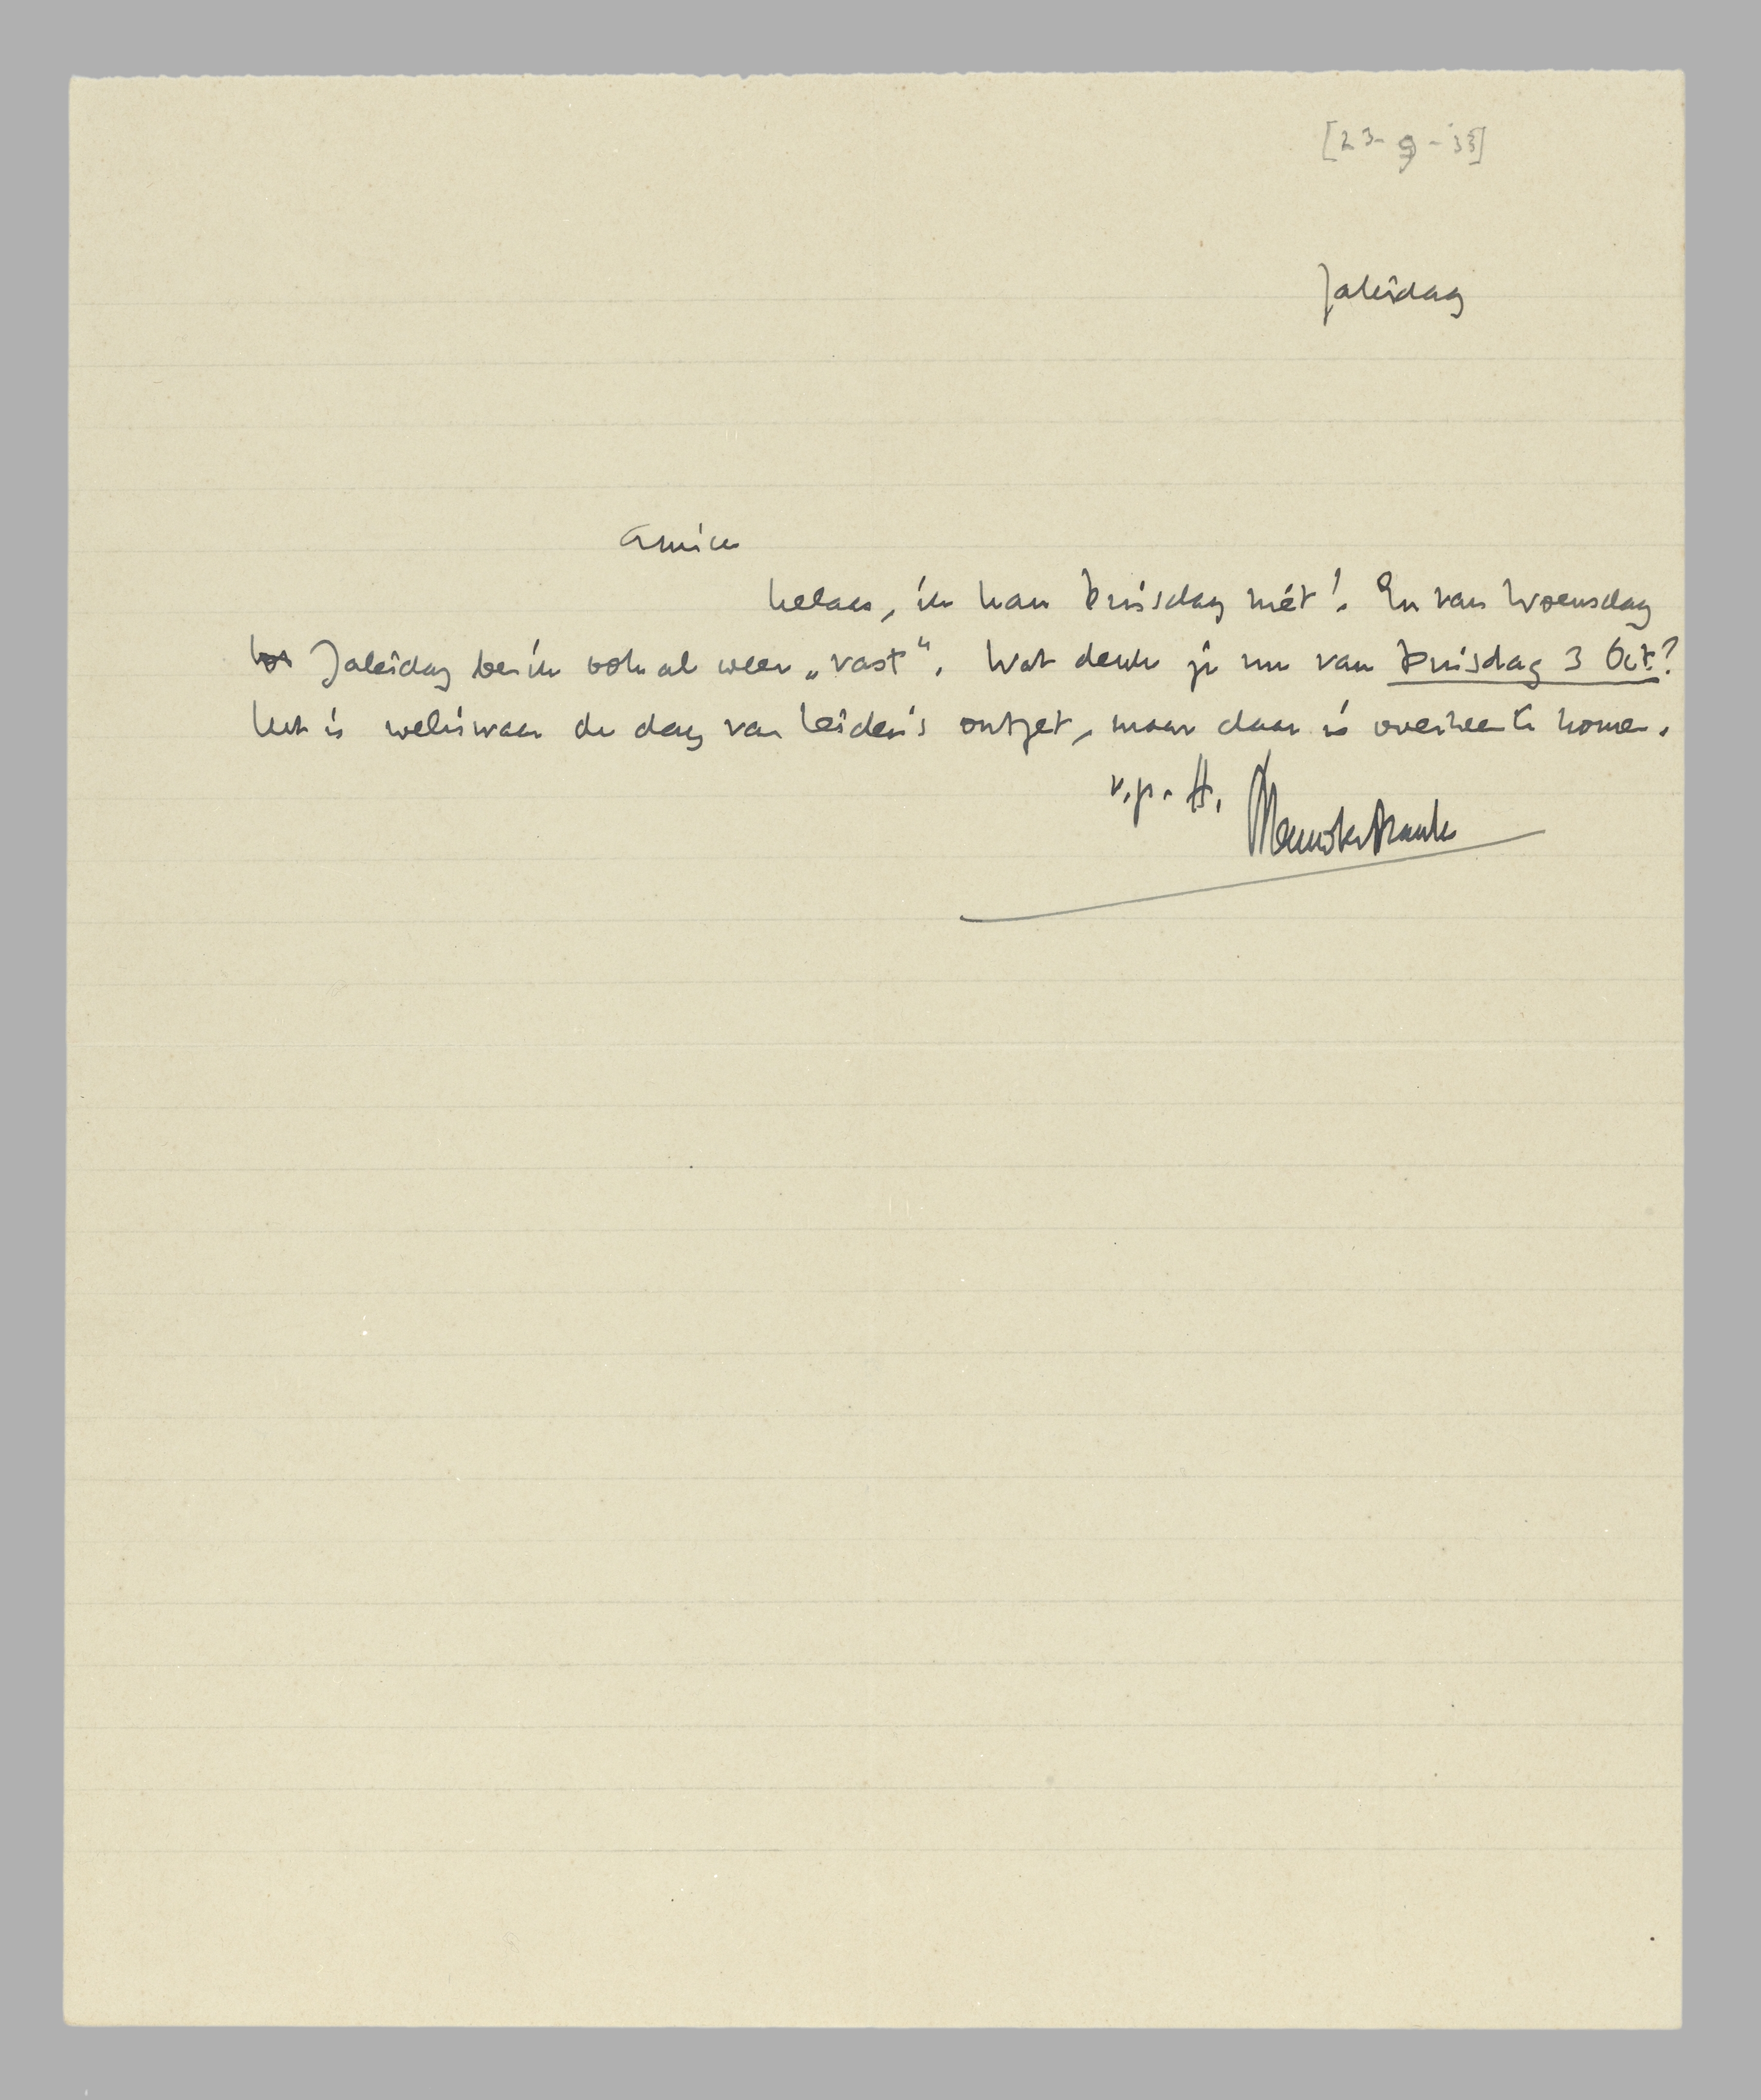 [23-9-'33]
Zaterdag
Amice
helaas, ik kan Dinsdag niet! En van Woensdag
tot Zaterdag ben ik ook al weer „vast". Wat denk je nu van Dinsdag 3 Oct.?
Het is weliswaar de dag van Leiden's ontzet, maar daar is overheen te komen.
v.p. H. Marsman